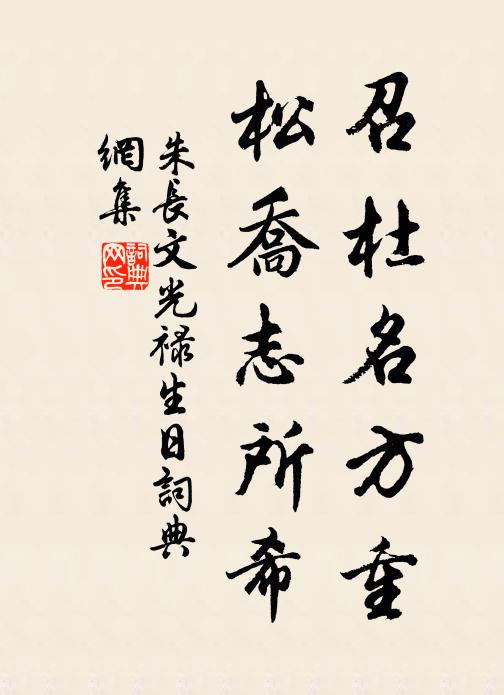 召杜名方重
松喬志所希
朱長文光禄生日詞典
網集
詞典網印